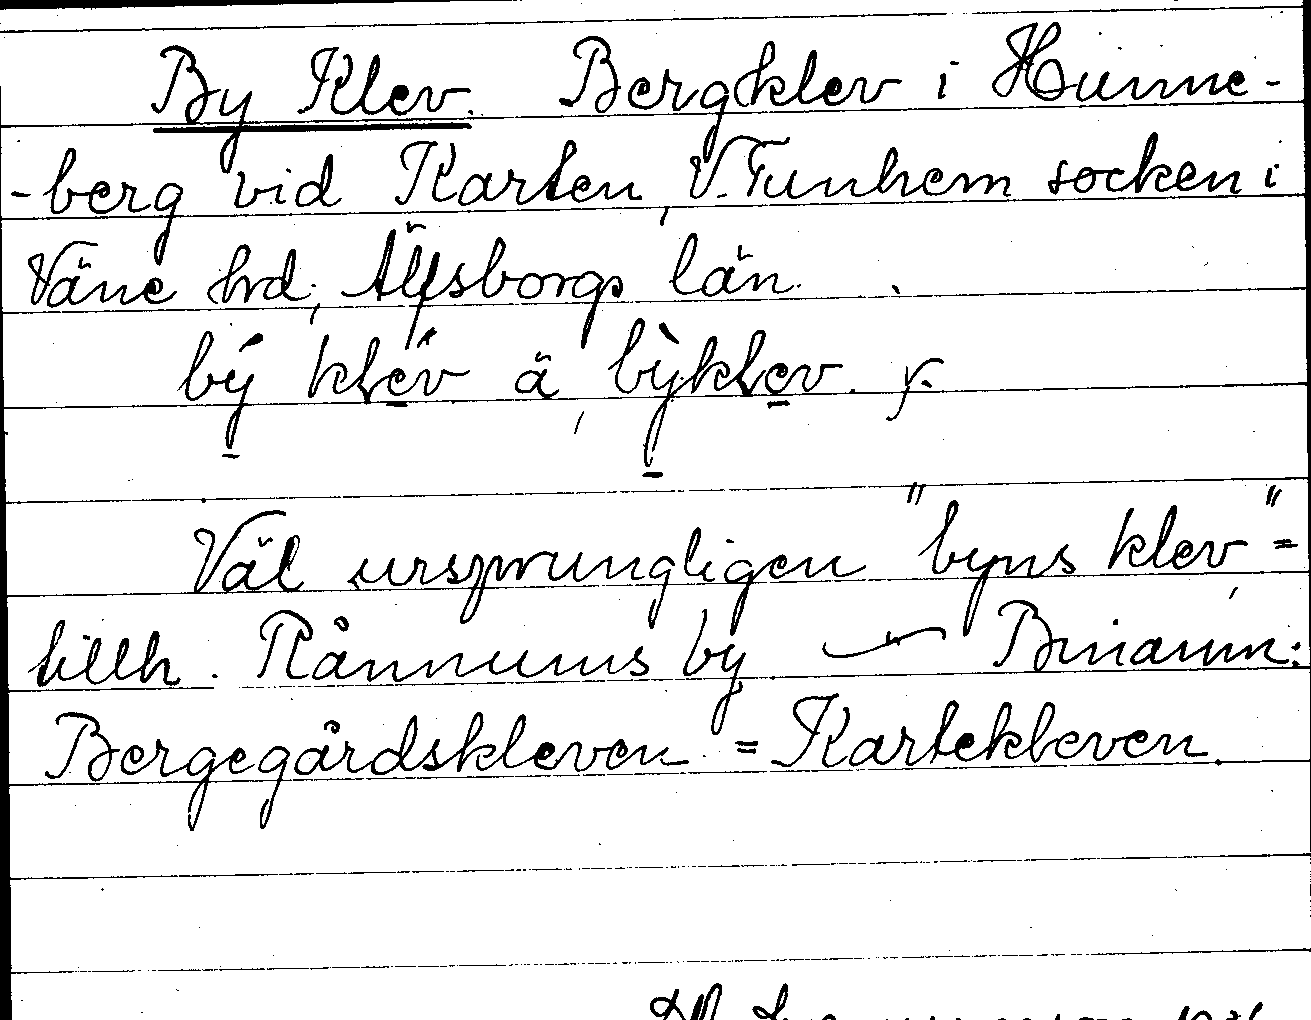 By Klev. Bergklev i Hunne-
-berg vid Karten, V. Tunhem socken i
Väne hrd, Älfsborgs län.
bý klév ä, bỳklev. y.
Väl ursprungligen "byns klev" =
tillh. Rånnums by Binamn:
Bergegårdskleven = Kartekleven.